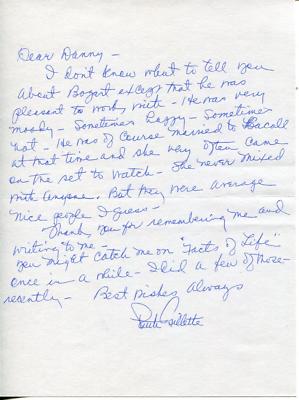 Dear Danny -
I don't know what to tell you
about Bogart except that he was
pleasant to work with - He was very
moody - Sometimes happy - Sometimes
not - He was of course married to Bacall
at that time and she very often came
on the set to watch - She never mixed
with anyone. But they were average
nice people I guess -
Thank you for remembering me and
writing to me -
You might catch me on "Facts of Life"
once in a while - I did a few of those
recently - Best Wishes Always
Ruth Gillette